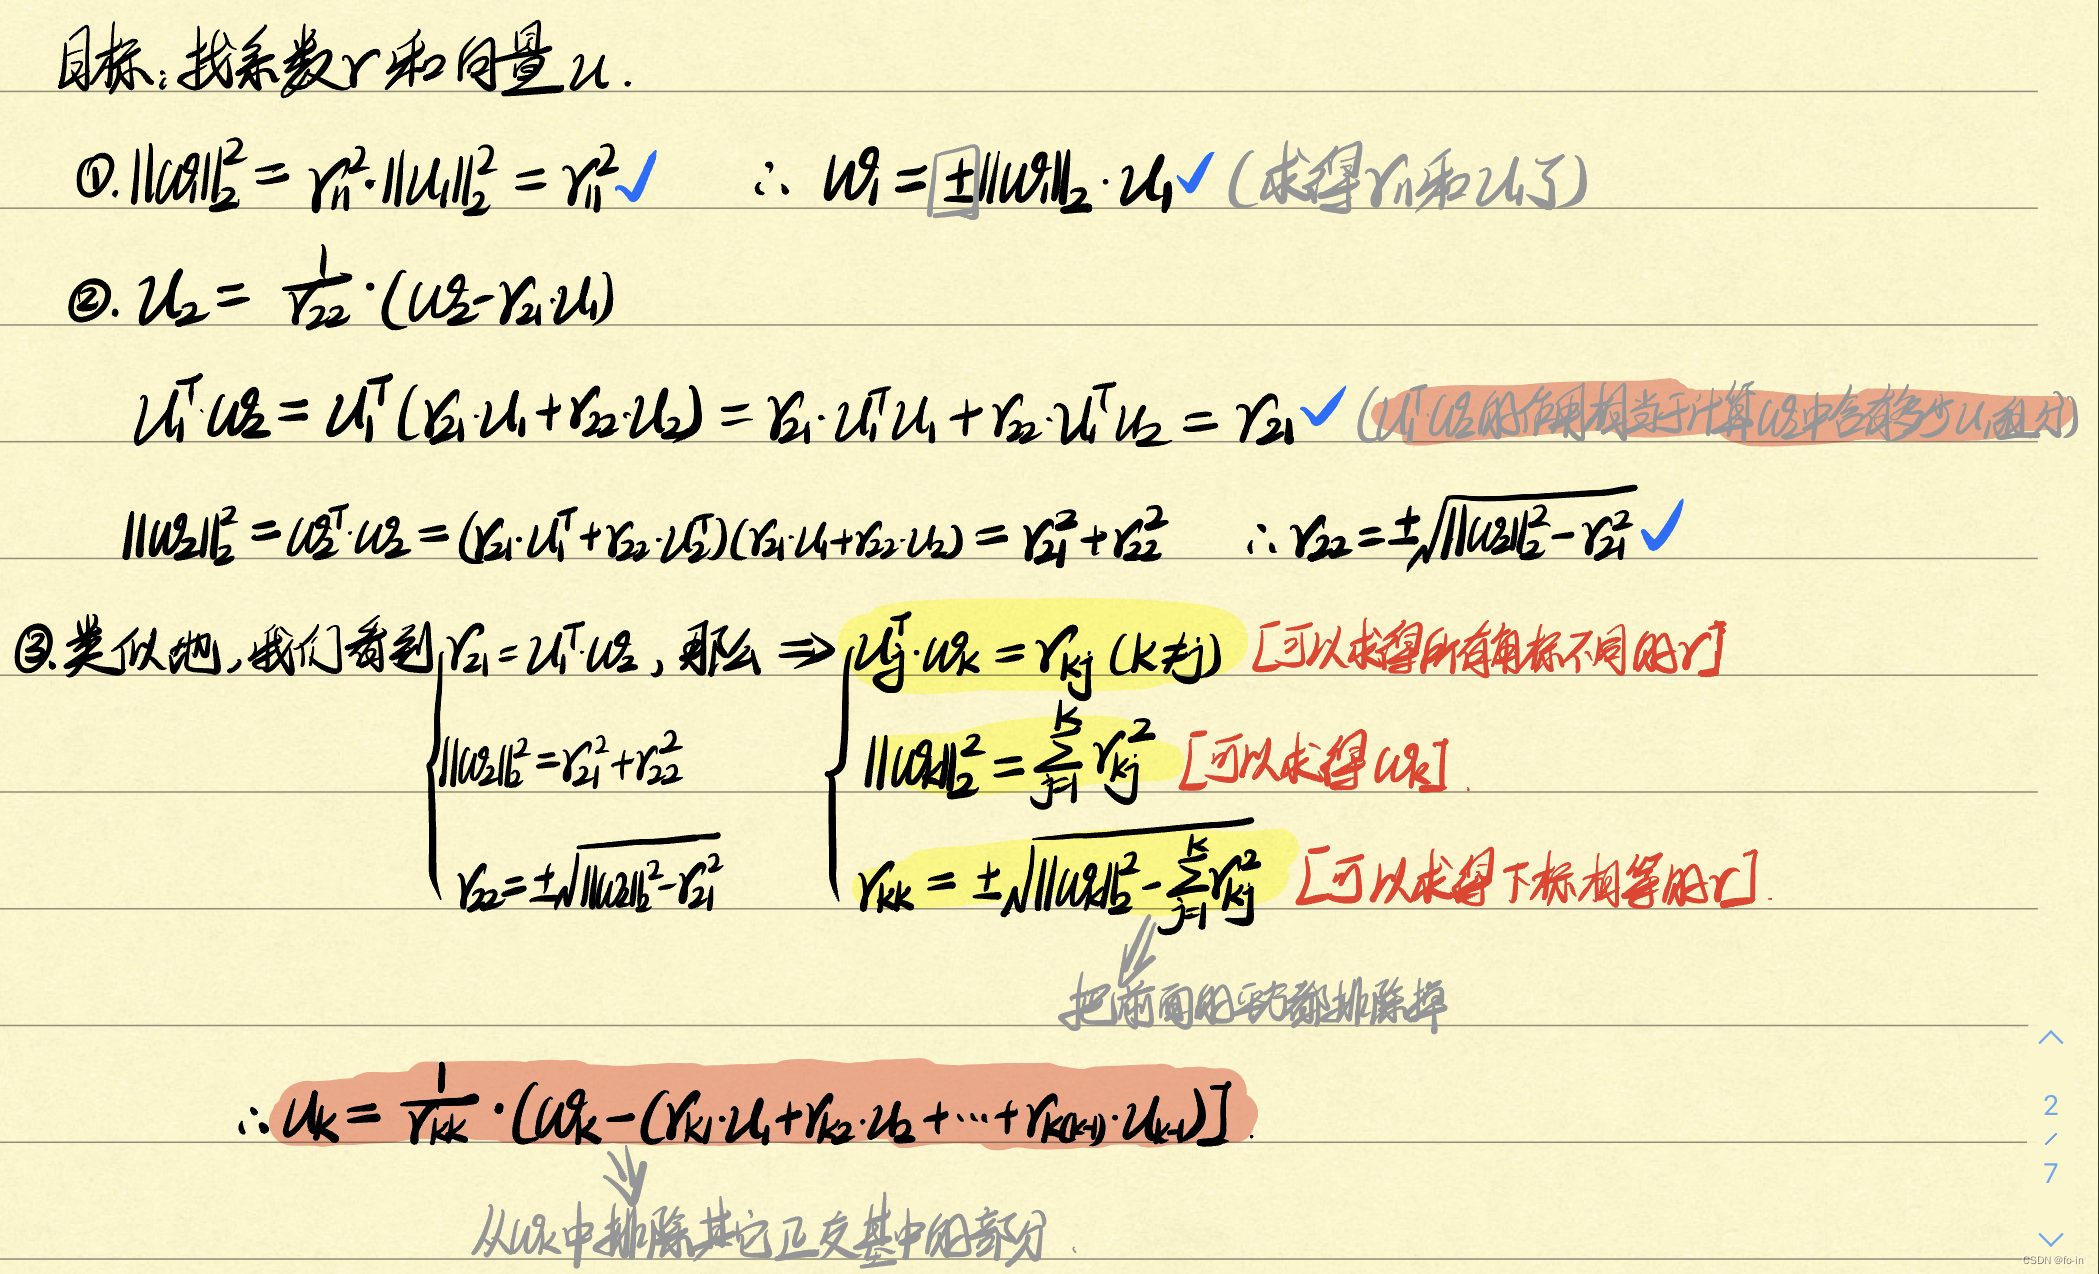 目标:找系数r和向量u.
①. ||w₁||₂² = r₁₁²·||u₁||₂² = r₁₁² ✓ ∴ w₁ = ±||w₁||₂·u₁ ✓ (求得r₁₁和u₁了)
②. u₂ = 1/r₂₂·(w₂-r₂₁·u₁)
u₁ᵀ·w₂ = u₁ᵀ(r₂₁·u₁+r₂₂·u₂) = r₂₁·u₁ᵀu₁ + r₂₂·u₁ᵀu₂ = r₂₁ ✓ (u₁ᵀ·w₂的作用相当于计算w₂中含有多少u₁组分)
||w₂||₂² = w₂ᵀ·w₂ = (r₂₁·u₁ᵀ+r₂₂·u₂ᵀ)(r₂₁·u₁+r₂₂·u₂) = r₂₁²+r₂₂² ∴ r₂₂ = ±√(||w₂||₂²-r₂₁²) ✓
③. 类似地,我们看到 { r₂₁ = u₁ᵀ·w₂, 那么 ⇒ { uⱼᵀ·wₖ = rₖⱼ (k≠j) [可以求得所有角标不同的r]
||w₂||₂² = r₂₁²+r₂₂² ||wₖ||₂² = Σⱼ₌₁ᴷ rₖⱼ² [可以求得wₖ].
r₂₂ = ±√(||w₂||₂²-r₂₁²) rₖₖ = ±√(||wₖ||₂² - Σⱼ₌₁ᴷ rₖⱼ²) [可以求得下标相等的r].
把前面的平方都排除掉
∴ uₖ = 1/rₖₖ·(wₖ-(rₖ₁·u₁+rₖ₂·u₂+···+rₖ₍ₖ₋₁₎·uₖ₋₁)].
从wₖ中排除其它正交基中的部分.
2
/
7
CSDN @fo-in